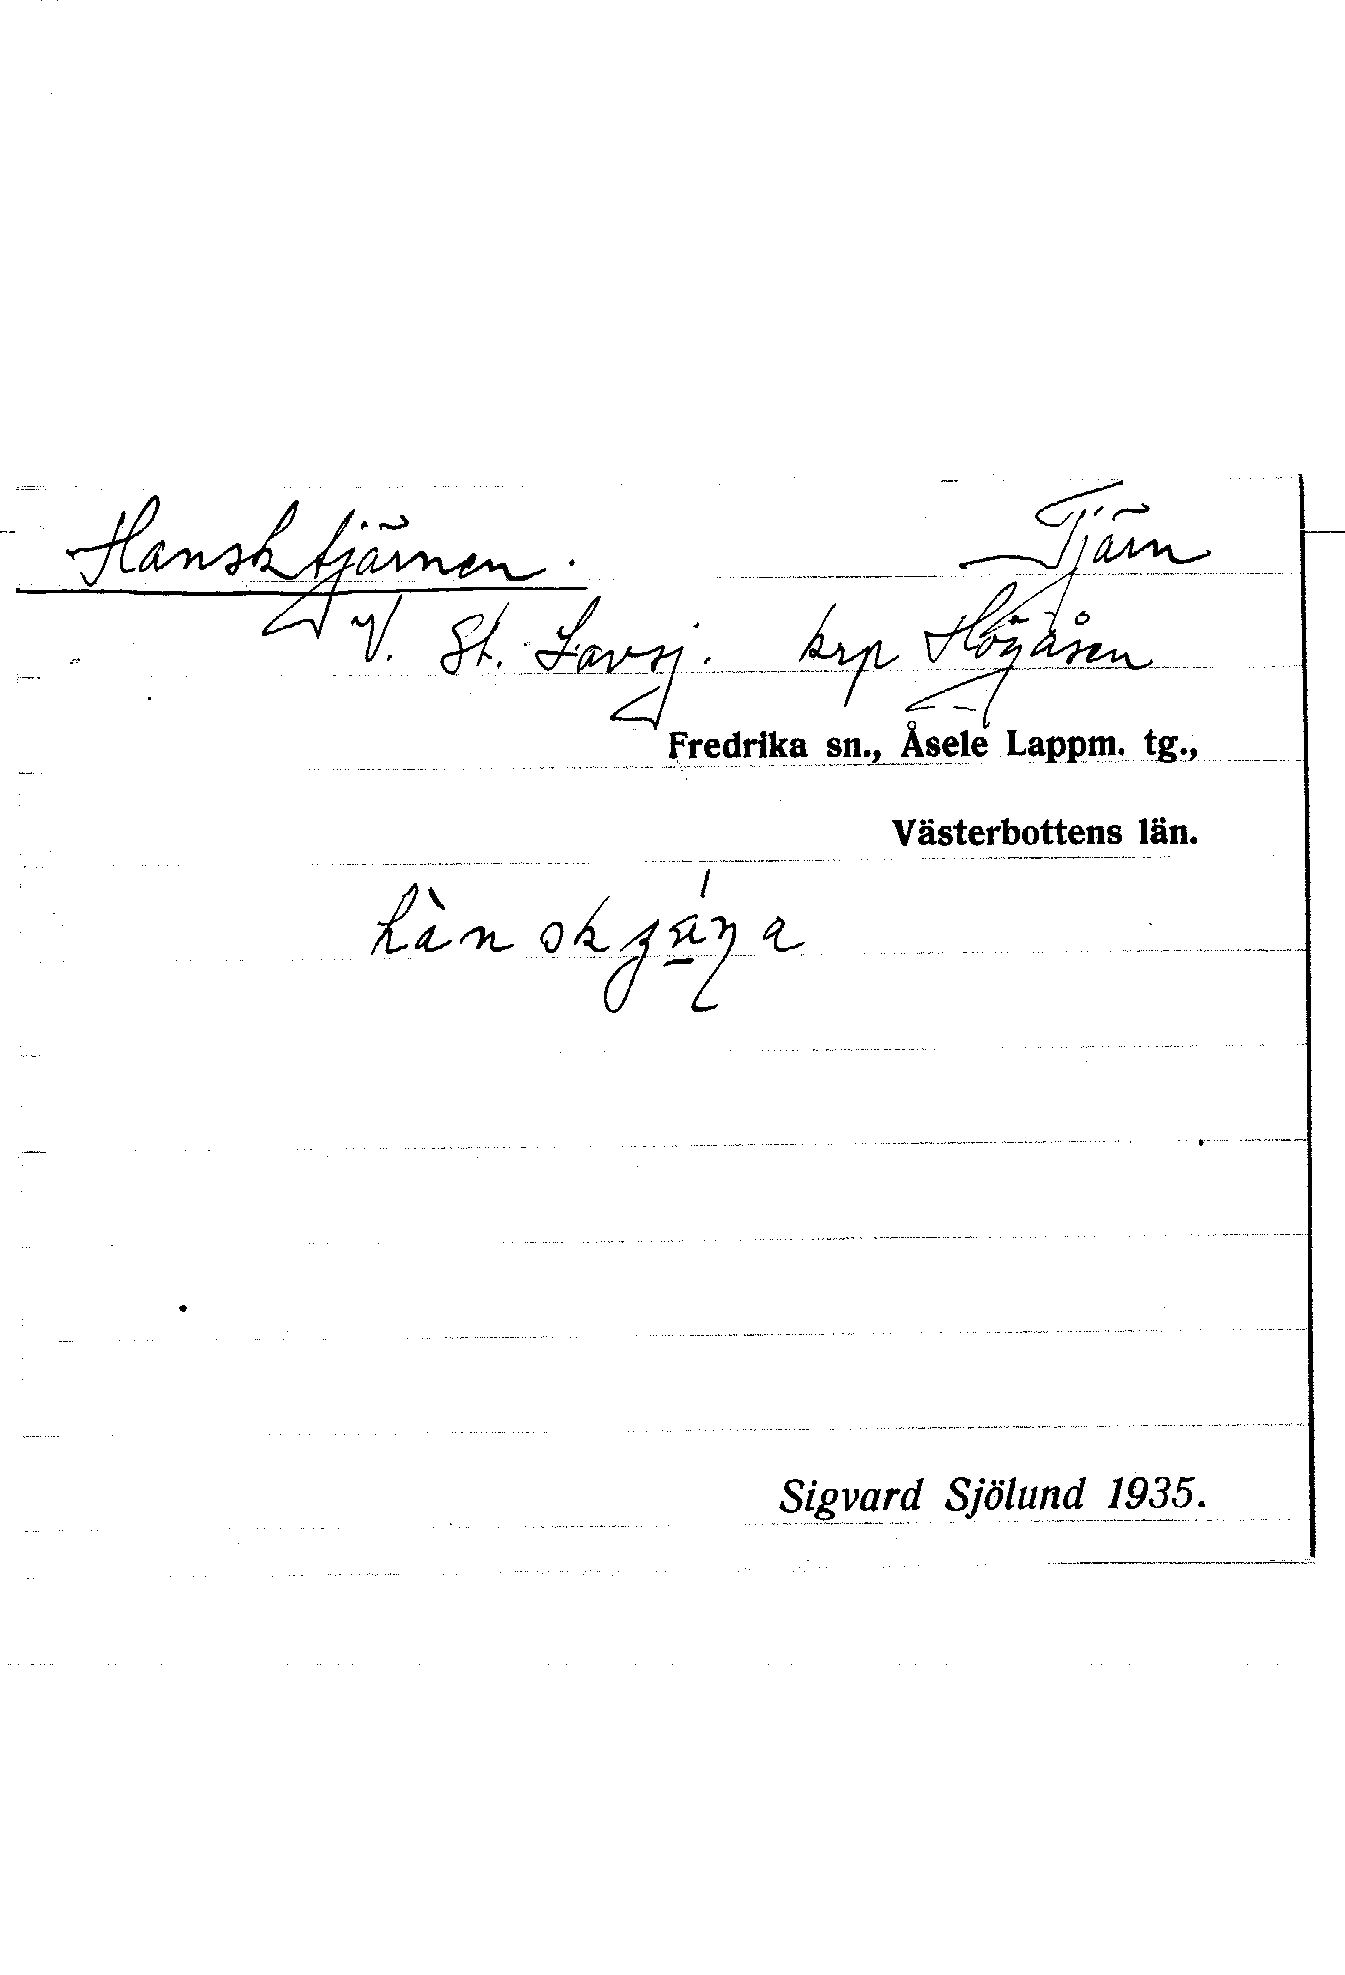 Hansktjärnen. Tjärn
V. St. Lavsj. krp Högåsen
Fredrika sn., Åsele Lappm. tg.,
Västerbottens län.
Sigvard Sjölund 1935.